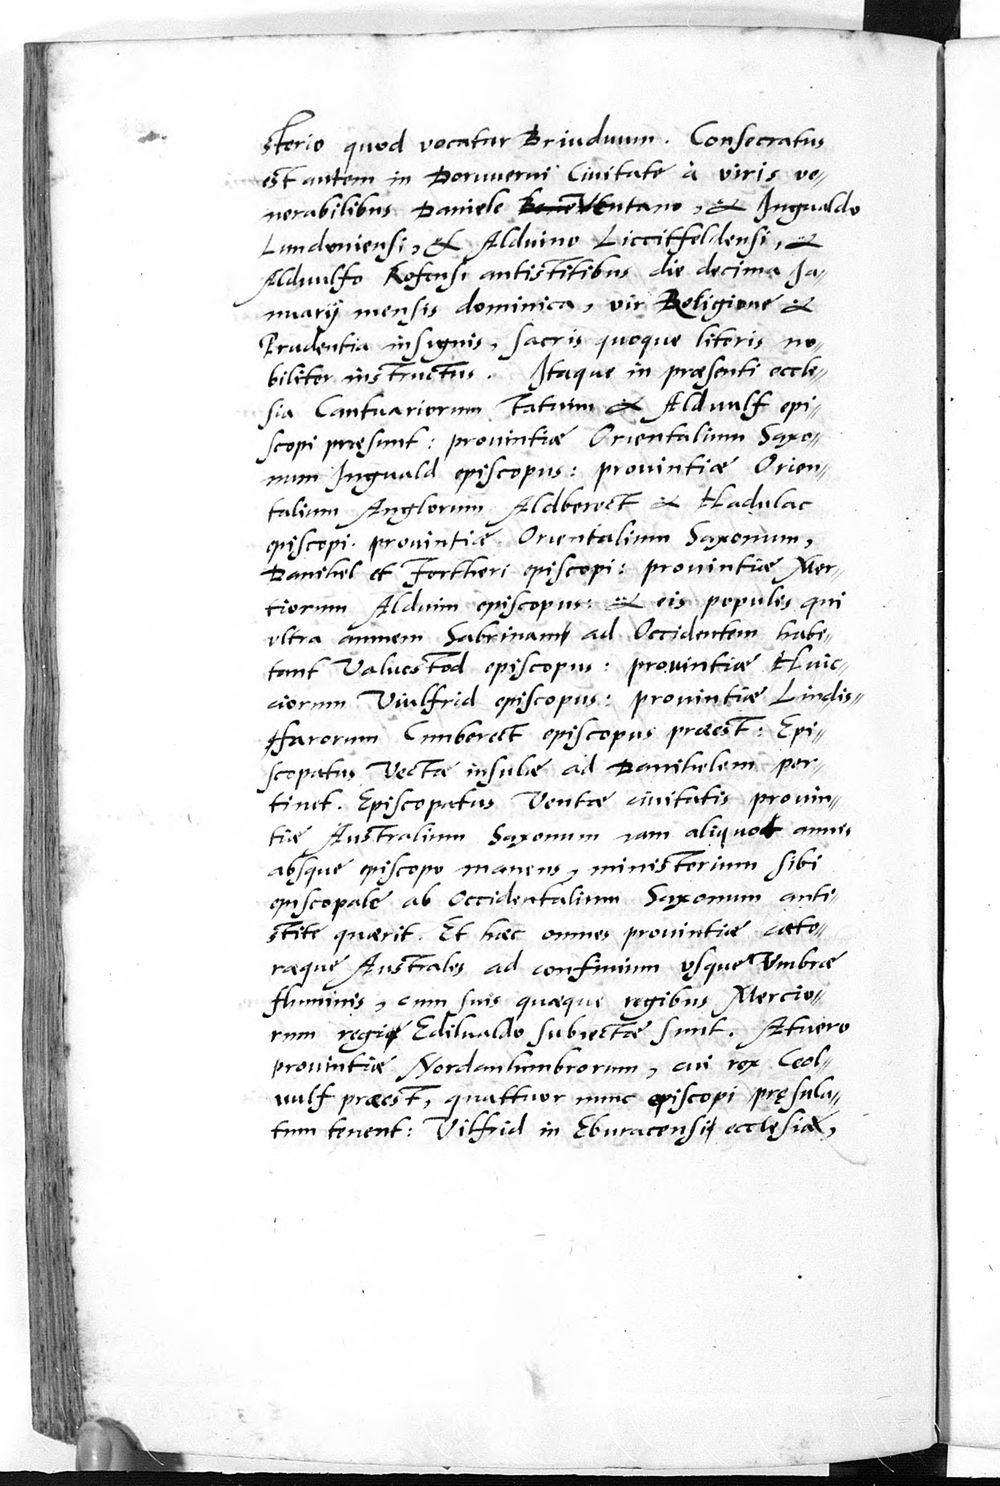 sterio quod vocatur Briuduum. Consecratus
est autem in Doruuerni Ciuitate à viris ve-
nerabilibus Daniele Ventano, & Ingualdo
Lundoniensi, & Alduino Liccitfeldensi, &
Alduulfo Rofensi antistitibus die decima Ja-
nuarij mensis dominica, vir Religione &
Prudentia insignis, sacris quoque literis no-
biliter instructus. Itaque in præsenti eccle-
sia Cantuariorum Tatuini & Alduulf epi-
scopi præsunt: prouintiæ Orientalium Saxo-
num Inguald episcopus: prouintiæ Orien-
talium Anglorum Aldberect & Hadulac
episcopi. prouintiæ Orientalium Saxonum,
Danihel et Fortheri episcopi: prouintiæ Mer-
tiorum Alduini episcopus: & eis populis qui
vltra amnem Sabrinam ad Occidentem habi-
tant Valuestod episcopus: prouintiæ Huic-
ciorum Viulfrid episcopus: prouintiæ Lindis-
farorum Cimberect episcopus præest: Epi-
scopatus Vectæ insulæ ad Danihelem per-
tinet. Episcopatus Ventæ ciuitatis prouin-
tiæ Australium Saxonum iam aliquot annis
absque episcopo manens, ministerium sibi
episcopale ab Occidentalium Saxonum anti-
stite quærit. Et hæc omnes prouintiæ cæte-
ræque Australes ad confinium vsque Vmbræ
fluminis, cum suis quæque regibus Mercio-
rum regi Edilualdo subiectæ sunt. At uero
prouintiæ Nordanhumbrorum, cui rex Ceol-
uulf præest, quattuor nunc episcopi pręsula-
tum tenent: Vilfrid in Eburacensi ecclęsia,